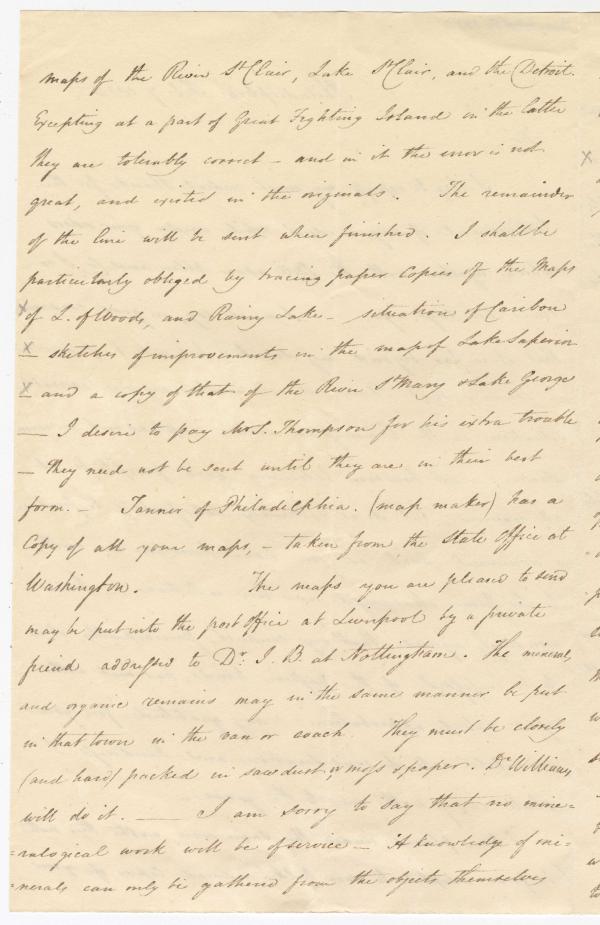 maps of the River St Clair, Lake St Clair, and the Detroit.
Excepting at a part of Great Fighting Island in the latter
they are tolerably correct – and in it the error is not
great, and existed in the originals. The remainder
of the line will be sent when finished. I shall be
particularly obliged by tracing paper Copies of the Maps
x of L. of Woods, and Rainy Lake – situation of Caribou
x – sketches of improvements in the map of Lake Superior
x – and a copy of that of the River St Mary & Lake George
— I desire to pay Mr S. Thompson for his extra trouble
– they need not be sent until they are in their best
form. – Tannir of Philadelphia. (map maker) has a
Copy of all your maps, – taken from the State Office at
Washington. The maps you are pleased to send
may be put into the post office at Liverpool by a private
friend addressed to Dr. J. B. at Nottingham. The minerals
and organic remains may in the same manner be put
in that town in the van or coach. They must be closely
(and hard) packed in sawdust, or moss & paper. Dr Williams
will do it. — I am sorry to say that no mine=
=ralogical work will be of service – A knowledge of mi=
=nerals can only be gathered from the objects themselves